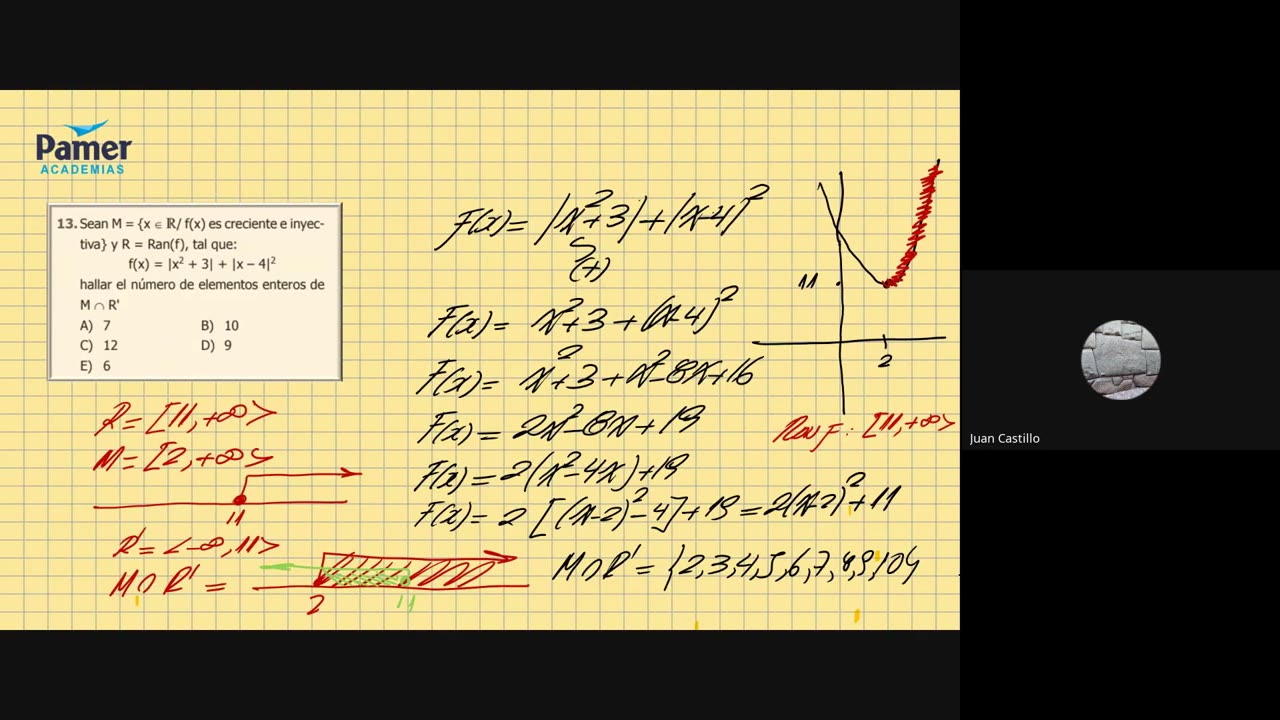 Pamer
ACADEMIAS
13. Sean M = {x ∈ ℝ/ f(x) es creciente e inyec-
tiva} y R = Ran(f), tal que:
f(x) = |x² + 3| + |x – 4|²
hallar el número de elementos enteros de
M ∩ R'
A) 7 B) 10
C) 12 D) 9
E) 6
R = [11, +∞>
M = [2, +∞>
11
R' = <-∞, 11>
M∩R' =
2 11
F(x) = |x²+3| + |x-4|²
(+)
F(x) = x²+3 + (x-4)²
F(x) = x²+3 + x²-8x+16
F(x) = 2x²-8x+19
F(x) = 2(x²-4x)+19
F(x) = 2 [(x-2)²-4]+19 = 2(x-2)²+11
M∩R' = {2,3,4,5,6,7,8,9,10}
11
2
Ran f: [11, +∞>
Juan Castillo